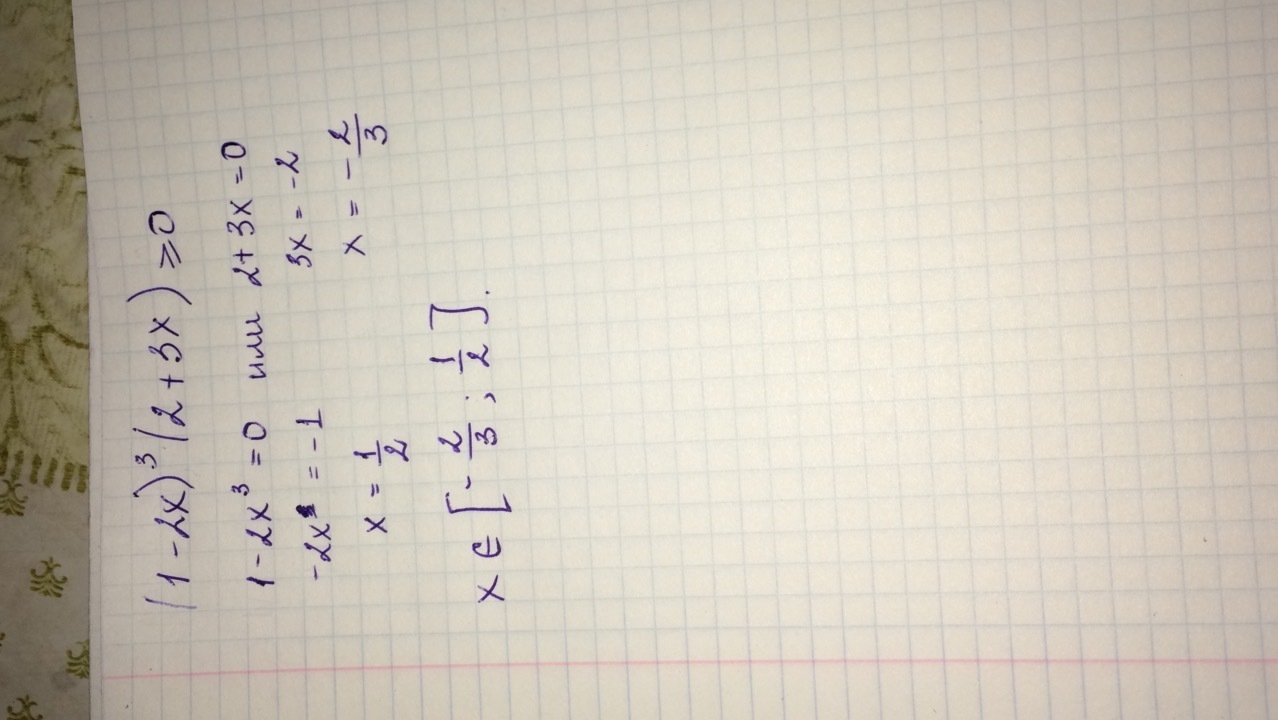 (1-2x)³(2+3x)⩾0
1-2x³=0 или 2+3x=0
-2x =-1 3x=-2
x=1/2 x=-2/3
x∈[-2/3;1/2].